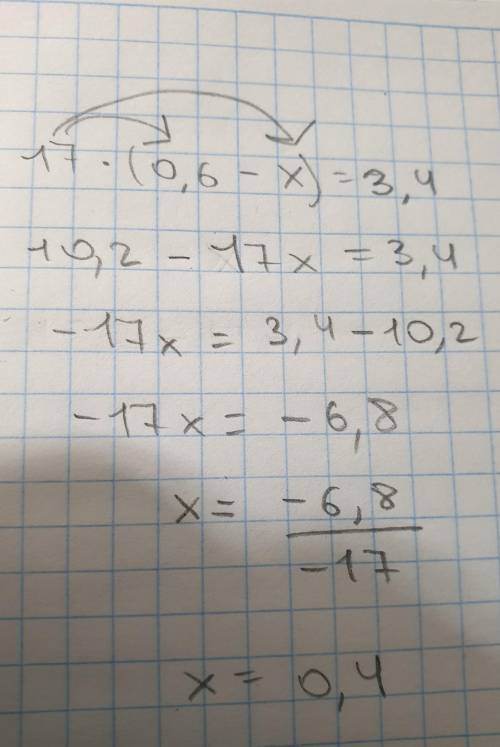 17 · (0,6 - x) = 3,4
10,2 - 17x = 3,4
-17x = 3,4 - 10,2
-17x = -6,8
x = -6,8 / -17
x = 0,4